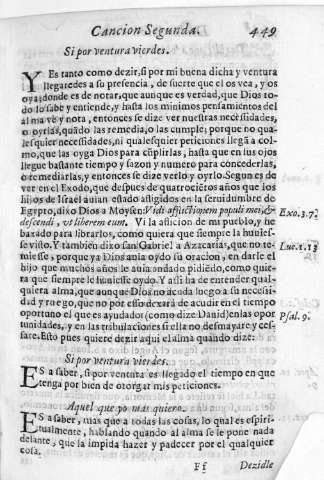 Cancion Segunda. 449
Si por ventura vierdes.
Y Es tanto como dezir, si por mi buena dicha y ventura
llegaredes a su presencia, de suerte que el os vea, y os
oya; donde es de notar, que aunque es verdad, que Dios to-
do lo sabe y entiende, y hasta los minimos pensamientos del
alma vè y nota, entonces se dize ver nuestras necessidades,
o oyrlas, quãdo las remedia, o las cumple; porque no qua-
lesquier necessidades, ni qualesquier peticiones llegã a col-
mo, que las oyga Dios para cũplirlas, hasta que en sus ojos
llegue bastante tiempo y sazon y numero para concederlas,
o remediarlas, y entonces se dize verlo y oyrlo. Segun es de
ver en el Exodo, que despues de quatrociẽtos años que los
hijos de Israel auian estado afligidos en la seruidumbre de
Egypto, dixo Dios a Moysen: Vidi afflictionem populi mei, &
descendi, vt liberem eum. Vi la aflicion de mi pueblo, y he
baxado para librarlos, como quiera que siempre la huuies-
se visto. Y tambien dixo san Gabriel a Azacarias, que no te-
miesse, porque ya Dios auia oydo su oracion, en darle el
hijo que muchos años le auia andado pidiẽdo, como quie-
ra que siempre le huuiesse oydo. Y assi ha de entender qual-
quiera alma, que aunque Dios no acuda luego a su necessi-
dad y ruego, que no por esso dexarà de acudir en el tiempo
oportuno el que es ayudador (como dize Dauid) en las opor
tunidades, y en las tribulaciones si ella no desmayare y ces-
sare. Esto pues quiere dezir aqui el alma quando dize:
Exo.3.7.
Luc.1.13
Psal.9.
Si por ventura vierdes.
ES a saber, si por ventura es llegado el tiempo en que
tenga por bien de otorgar mis peticiones.
Aquel que yo mas quiero.
ES a saber, mas que a todas las cosas, lo qual es espiri-
tualmente, hablando quando al alma se le pone nada
delante, que la impida hazer y padecer por el qualquier
cosa.
Ff Dezidle